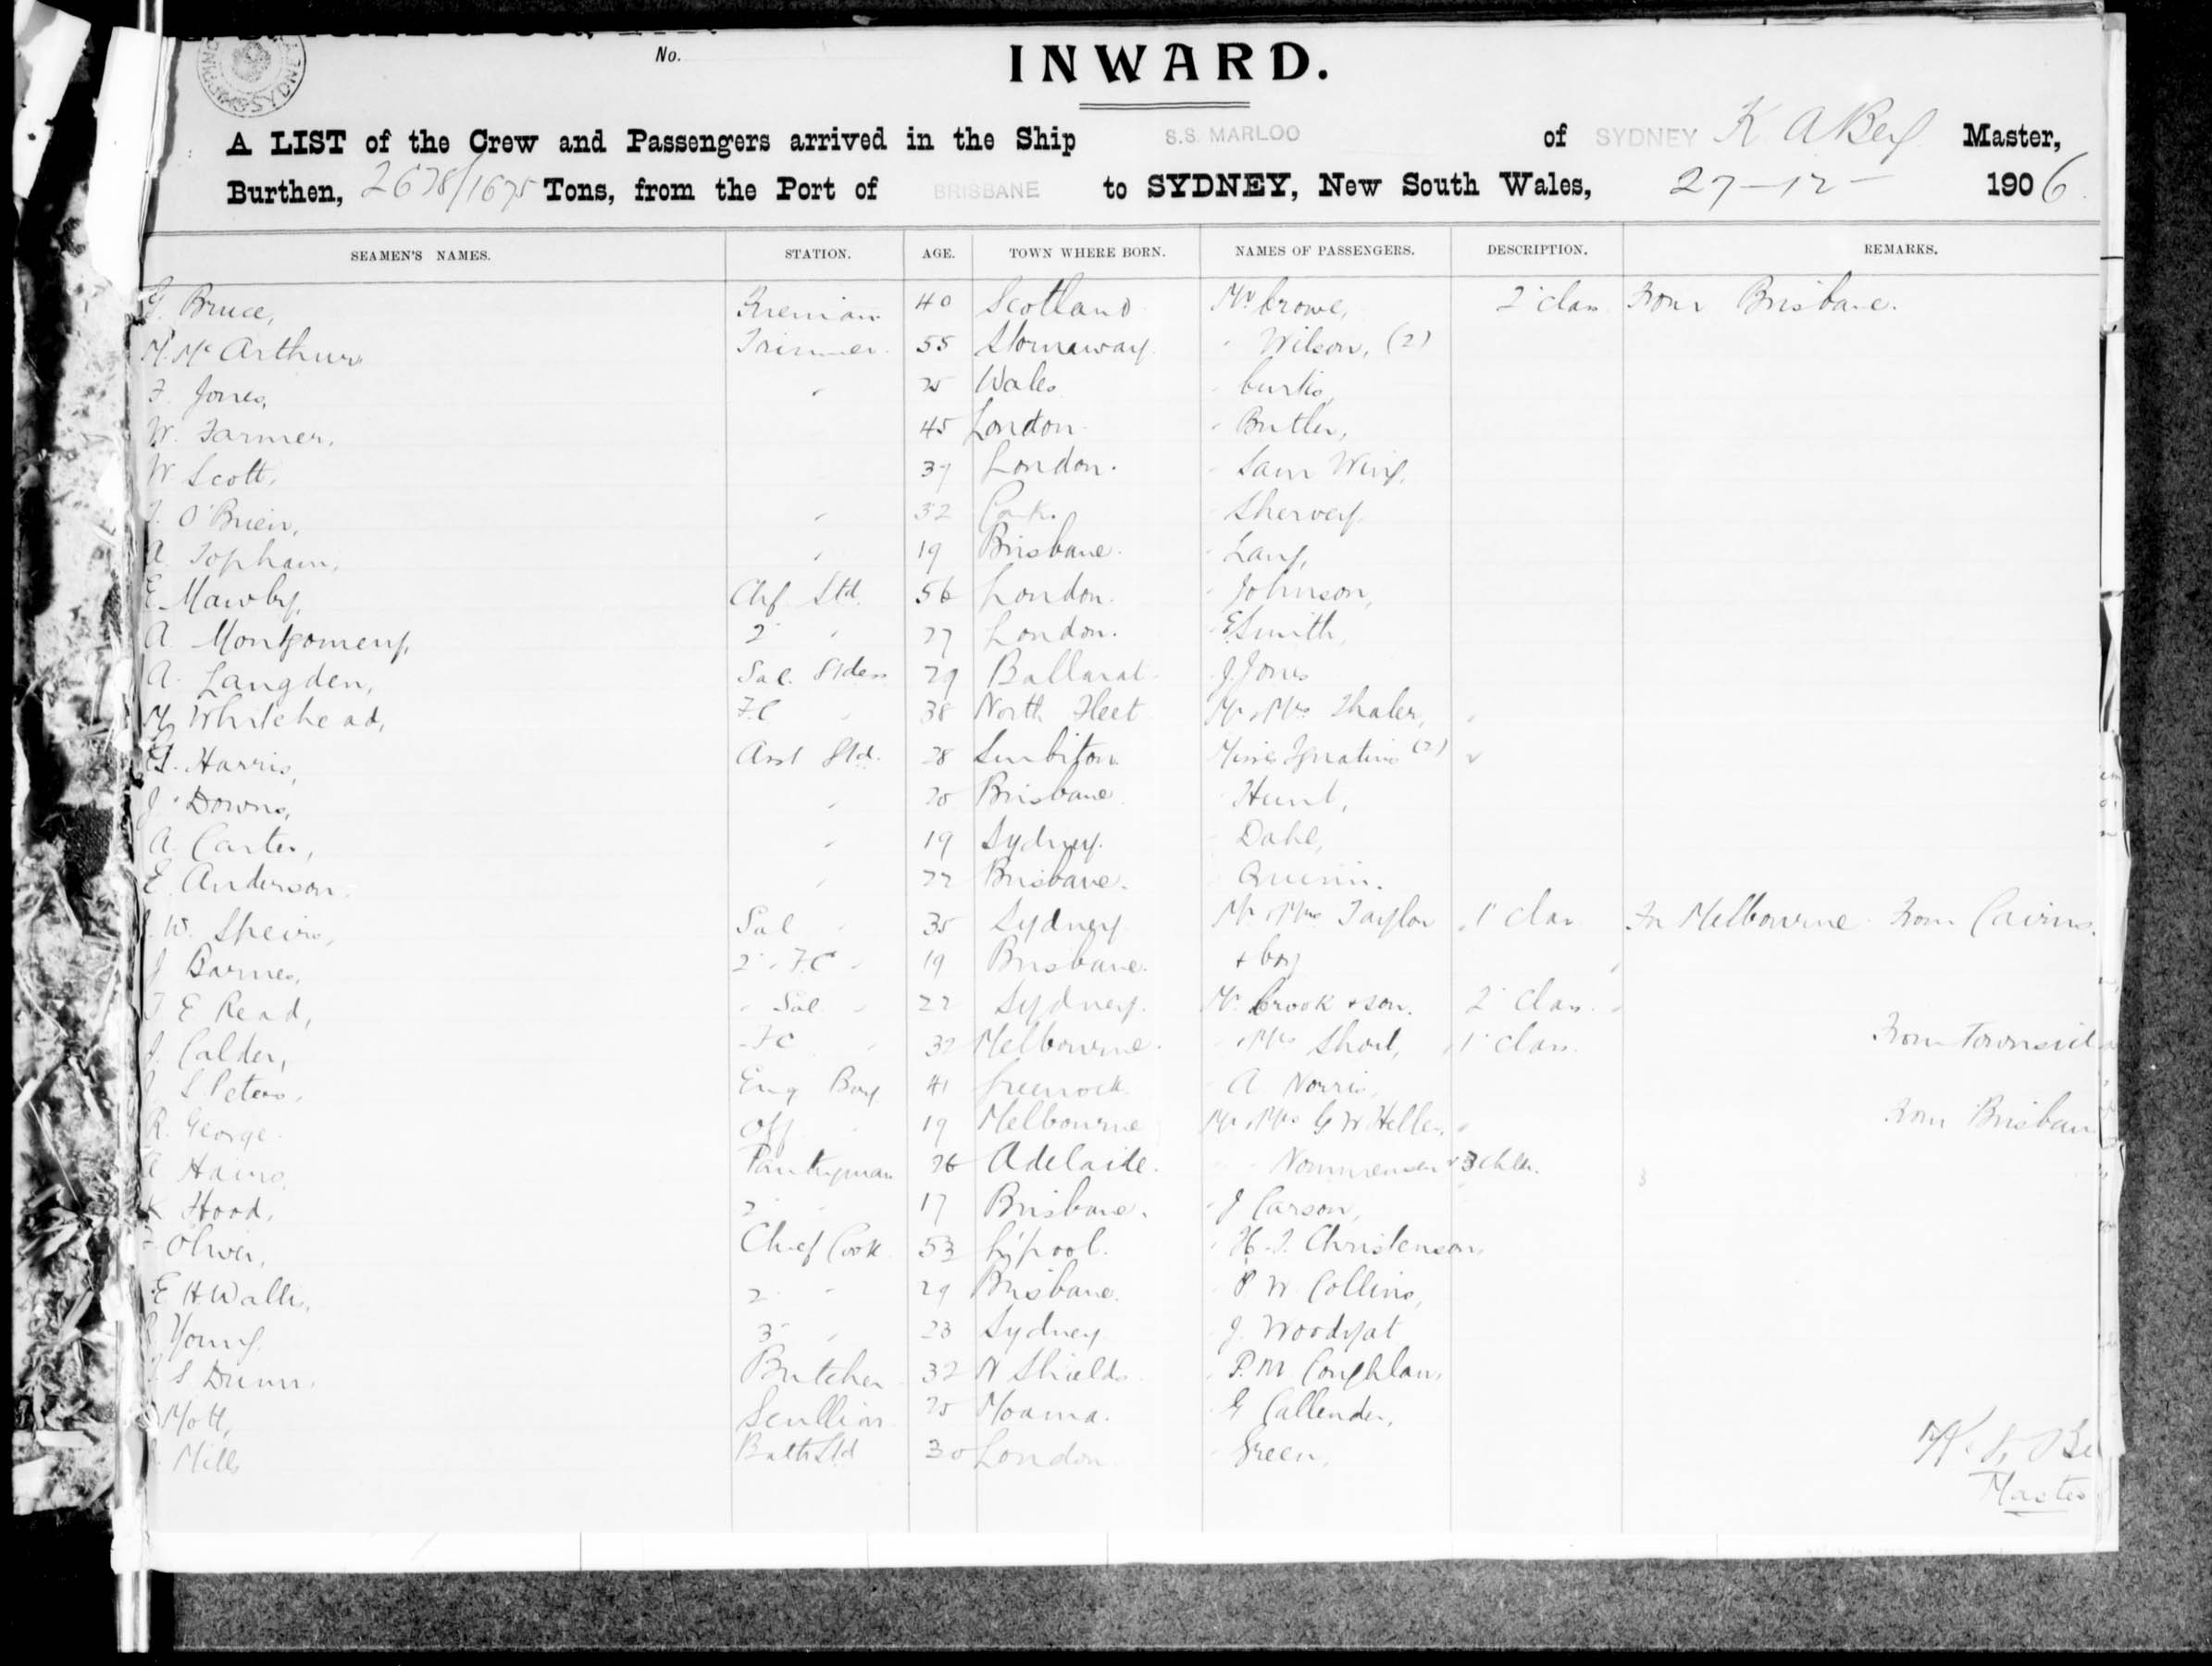 No.
INWARD.
SYDNEY
A LIST of the Crew and Passengers arrived in the Ship S.S. MARLOO of SYDNEY K A Master,
Burthen, 2678/1675 Tons, from the Port of BRISBANE to SYDNEY, New South Wales, 27-12- 1906.
SEAMEN'S NAMES. STATION. AGE. TOWN WHERE BORN. NAMES OF PASSENGERS. DESCRIPTION. REMARKS.
G. Bruce, Fireman 40 Scotland Mr Crowe, 2 class From Brisbane.
Mc Arthur Trimmer 55 Stornaway " Wilson, (2)
F. Jones, " 25 Wales " Curtis,
W. Farmer, 45 London " Butler,
W Scott, 37 London. " Sam Wing,
O'Brien, " 32 Cork. " Shervey
A Topham, " 19 Brisbane. " Lang,
E. Mawby, Chf. Std. 56 London. " Johnson,
A Montgomery, 2 " 27 London. " E Smith,
A. Langden, Sal. Stdess 29 Ballarat " J. Jones
Whitehead, F.C " 38 North Fleet Mr & Mrs Thaler, "
Harris, Asst Std. 28 Surbiton Misses Ignatius (2) "
J. Downs, " 20 Brisbane " Hunt,
A. Carter, " 19 Sydney. " Dahl,
E. Anderson. " 22 Brisbane. " Quinn.
W. Speirs, Sal " 35 Sydney Mr & Mrs Taylor 1 class For Melbourne From Cairns.
J Barnes, 2 " F.C " 19 Brisbane. + boy "
E Read, " Sal " 22 Sydney. Mr Crook + son. 2 Class. "
J. Calder, " FC " 32 Melbourne. " Mrs Short, 1 class. From Townsvil
S Peters, Eng Boy 41 Greenock " A Norris,
R. George Off " 19 Melbourne Mr Mrs G W Heller, " From Brisban
Pantryman 26 Adelaide. " Nommensen & 3 chln.
K Hood, 2 " 17 Brisbane. " J Carson,
Oliver, Chief Cook 53 L'pool. " H. J. Christenson,
E H Wallis, 2 " 29 Brisbane. " P W Collins,
Young 3 " 23 Sydney " J. Woodyat
S Dunn, Butcher 32 N Shields " P.M Coughlan,
Mott, Scullion 25 Moama. " G Callender,
Mills Bath Std 30 London " Green,
Master